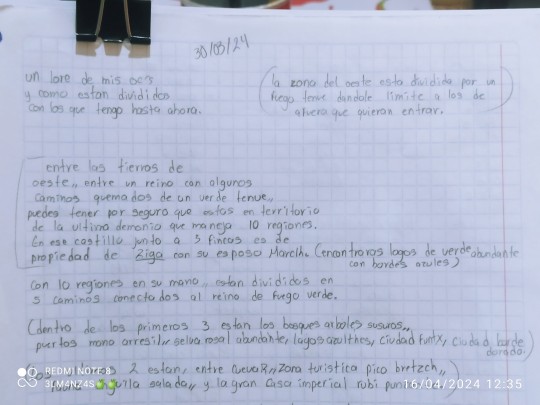 30/03/24
un lore de mis ocs
y como estan divididos
con los que tengo hasta ahora.
(la zona del oeste esta dividida por un
fuego tenue dandole limite a los de
afuera que quieran entrar.)
entre las tierras de
oeste,, entre un reino con algunos
caminos quemados de un verde tenue,,
puedes tener por seguro que estas en territorio
de la ultima demonio que maneja 10 regiones.
En ese castillo junto a 5 fincas es de
propiedad de Ziga con su esposo (encontraras lagos de verde abundante
con bordes azules)
con 10 regiones en su mano,, estan divididos en
5 caminos conectados al reino de fuego verde.
(dentro de los primeros 3 estan los bosques arboles susuros,,
puertos mano arresil,, selva rosal abundante, lagos ciudad ciudad borde
dorado.
2 estan, entre zona turistica pico bretzch,,
salada,, y la gran casa imperial rubi
REDMI NOTE 8
3LM4NZ4S
16/04/2024 12:35